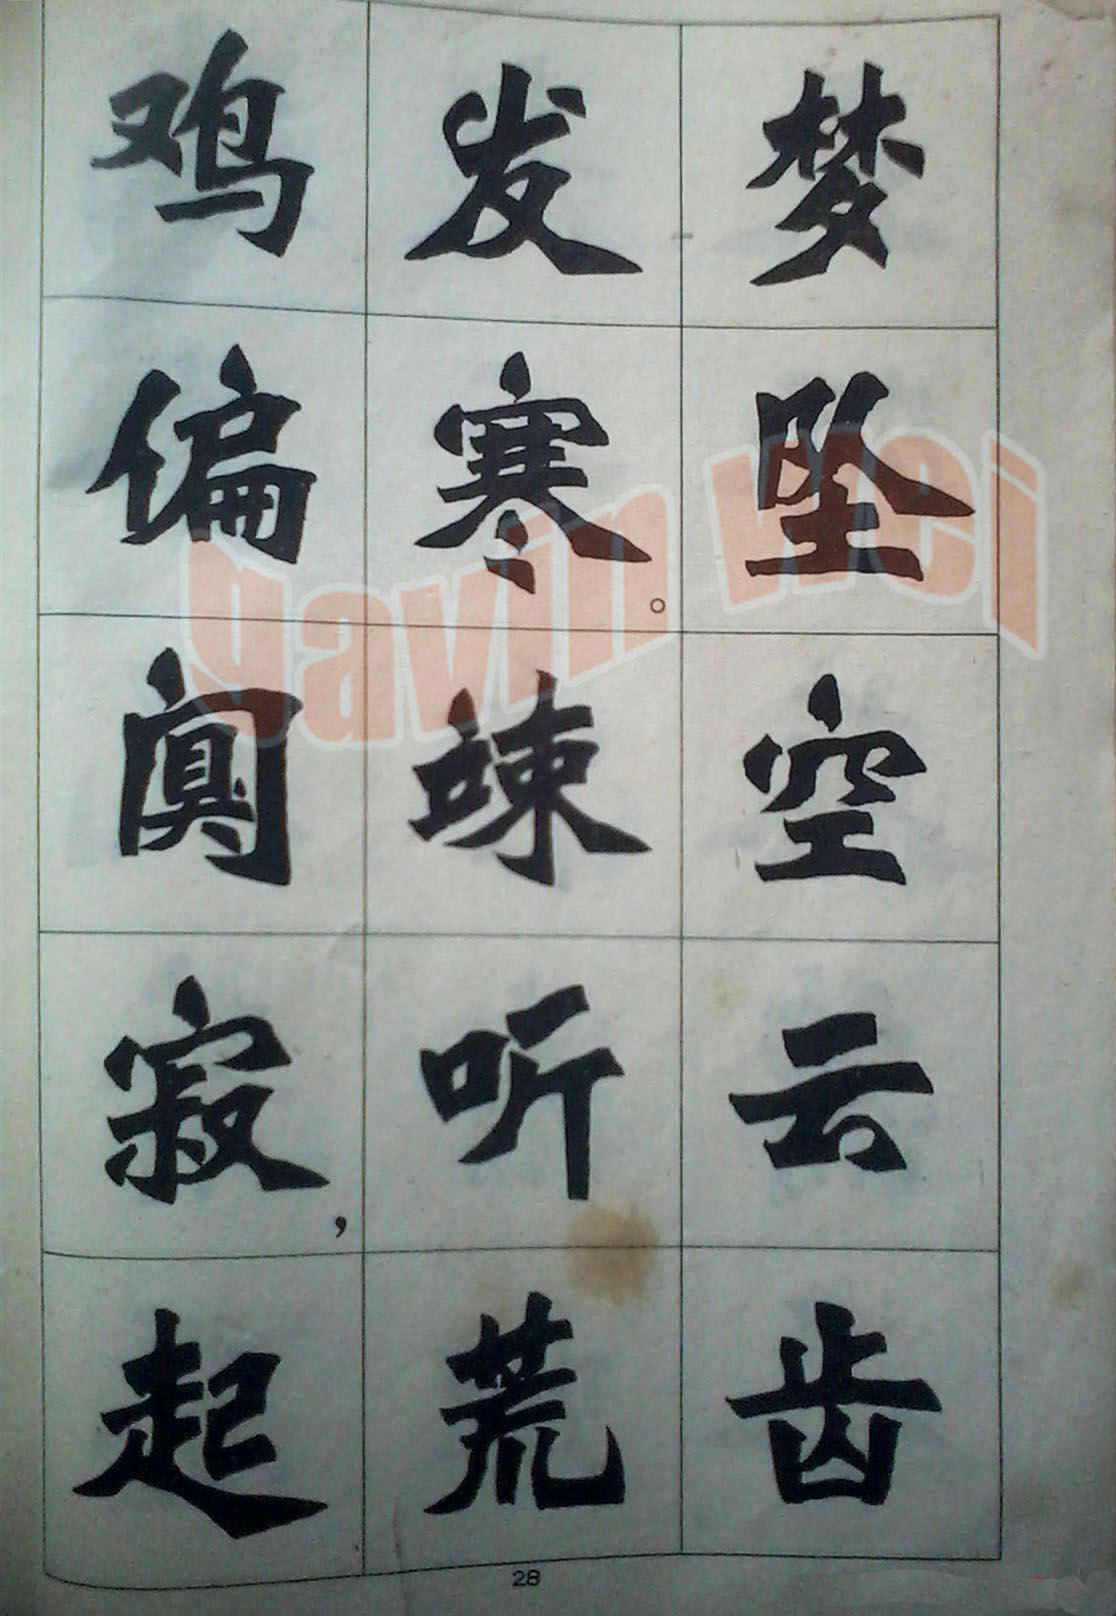 梦坠空云齿
发寒。竦听荒
鸡偏阒寂,起
gavin wei
28